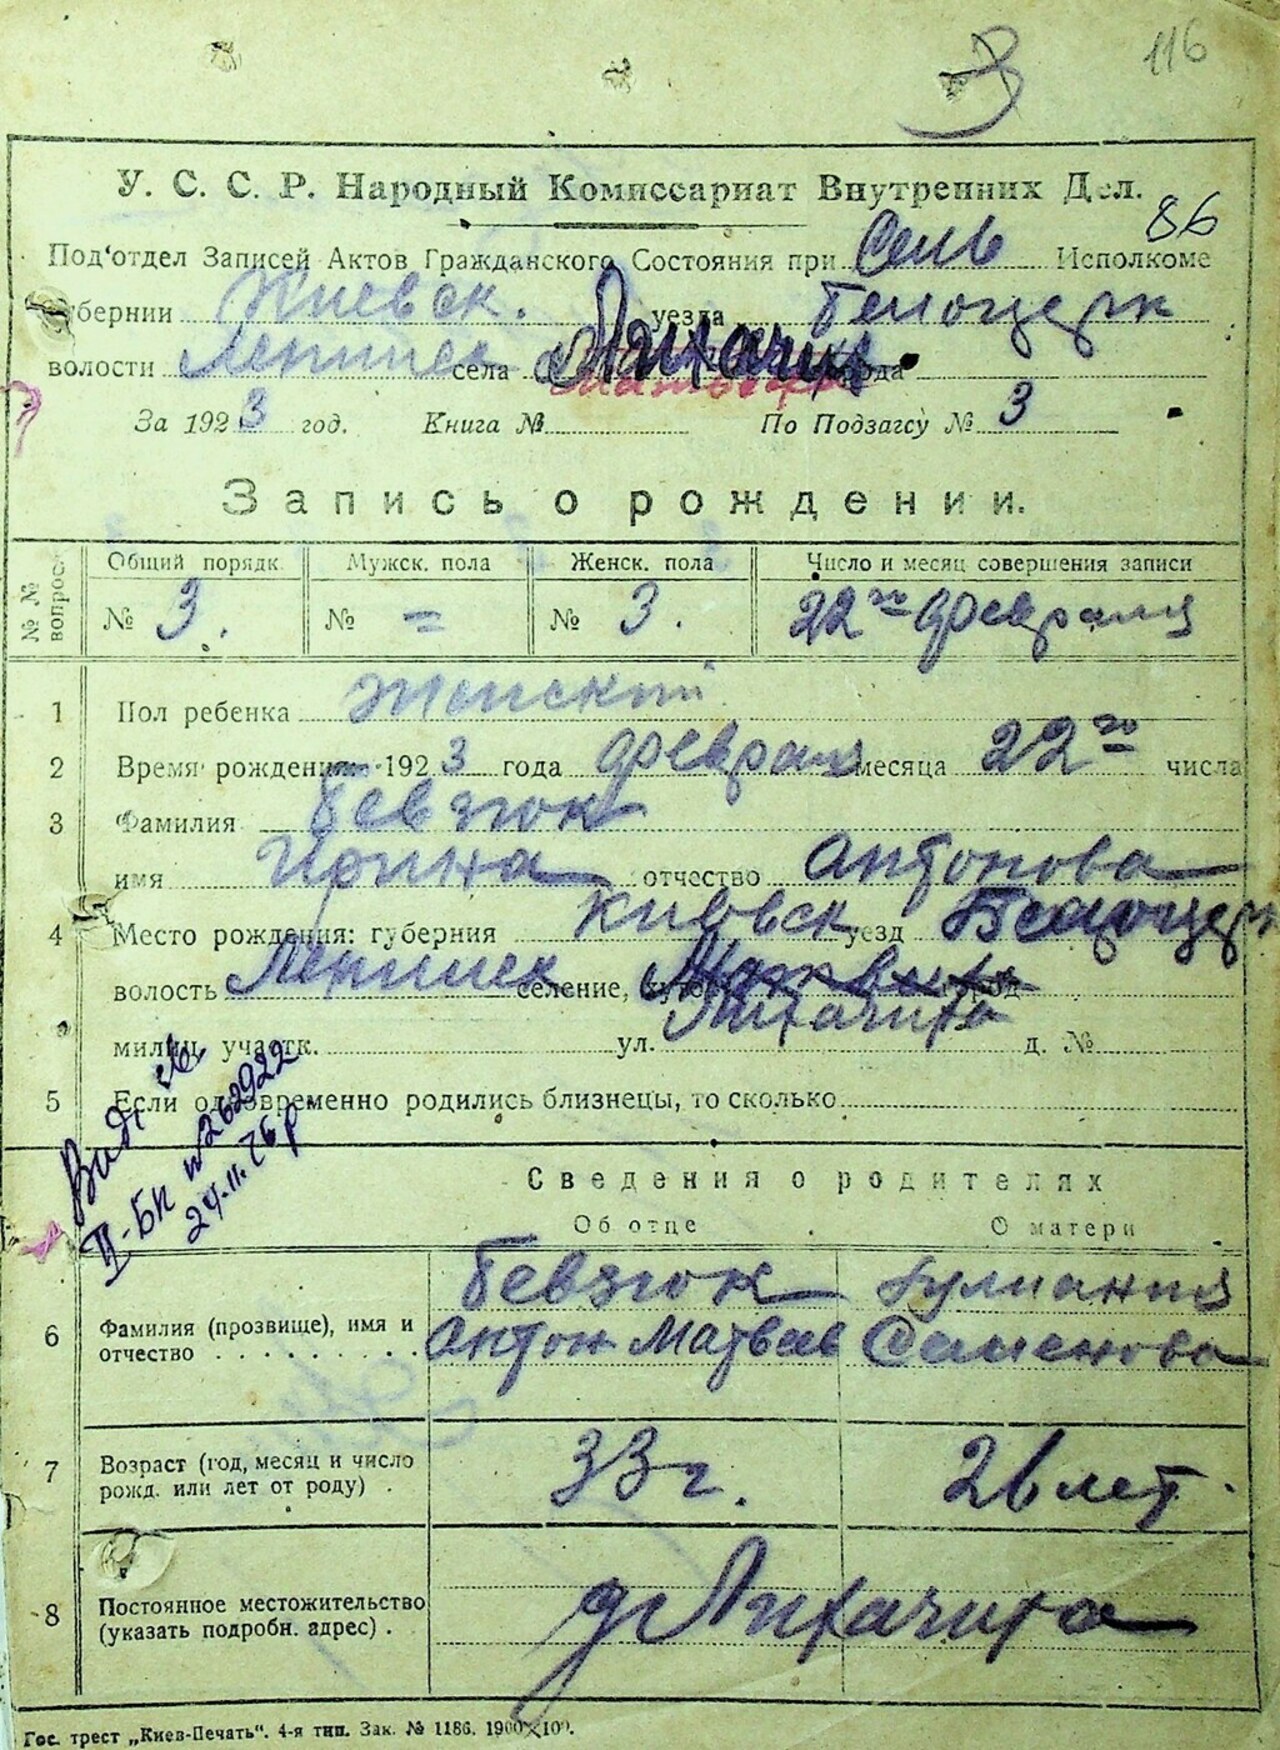 116
З
У. С. С. Р. Народный Комиссариат Внутренних Дел.
86
Под'отдел Записей Актов Гражданского Состояния при Сель Исполкоме
губернии Киевск. уезда Белоцерк
волости Ленинск села Лихачих города
За 1923 год. Книга № По Подзагсу № 3
Запись о рождении.
№ № вопрос. Общий порядк. Мужск. пола Женск. пола Число и месяц совершения записи
№ 3. № = № 3. 22го февраля
1 Пол ребенка Женский
2 Время рождения 1923 года февраля месяца 22го числа
3 Фамилия Бевзюк
имя Ирина отчество Антонова
4 Место рождения: губерния Киевск уезд Белоцерк
волость Ленинск селение, хутор город
Лихачиха
милиц. участк. ул. д. №
5 Если одновременно родились близнецы, то сколько
Вид.
II-БК №262922
24.11.76р
Сведения о родителях
Об отце О матери
6 Фамилия (прозвище), имя и отчество Бевзюк Антон Матвеев Улиания Семенова
7 Возраст (год, месяц и число рожд. или лет от роду) 33 г. 26 лет.
8 Постоянное местожительство (указать подробн. адрес) д Лихачиха
Гос. трест „Киев-Печать“. 4-я тип. Зак. № 1186. 1900×100.